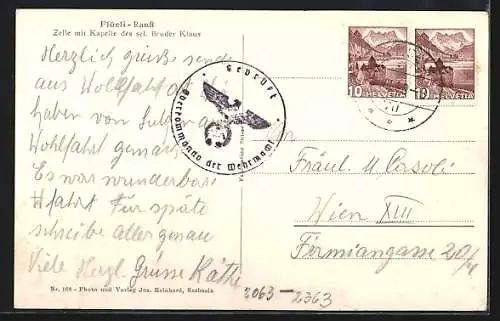 Flüeli-Ranft
Zelle mit Kapelle des sel. Bruder Klaus
Herzlich Grüße sende
aus
haben von
Wohlfahrt gemacht
Es war wunderbar
Für späte
schreibe alles genau
Viele Herzl. Grüsse Käthe
Geprüft
Oberkommando der Wehrmacht
10 HELVETIA
10 HELVETIA
An
Fräul. M. Casoli
Wien XIII
Firmiangasse 20/
Nr. 108 - Photo und Verlag Jos. Reinhard, Sachseln
2063-2363